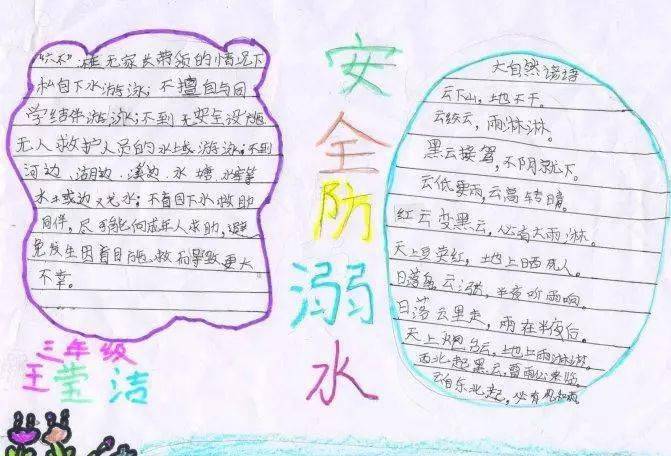 "六不":在无家长带领的情况下
私自下水游泳;不擅自与同
学结伴游泳;不到无安全设施
无人救护人员的水域游泳;不到
河边、湖边、溪边、水塘、水库等
水域边玩水;不盲目下水救助
同伴,尽可能向成年人求助,避
免发生因盲目施救而导致更大
不幸。
三年级
王莹洁
安全防溺水
大自然谚语
云下山,地不干。
云绞云,雨淋淋。
黑云接驾,不阴就下。
云低要雨,云高转晴。
红云变黑云,必有大雨淋。
天上豆荚红,地上晒死人。
日落盘云涨,半夜听雨响。
日落云里走,雨在半夜后。
天上云,地上雨淋淋。
西北起黑云,雷雨必来临。
云自东北起,必有风和雨。